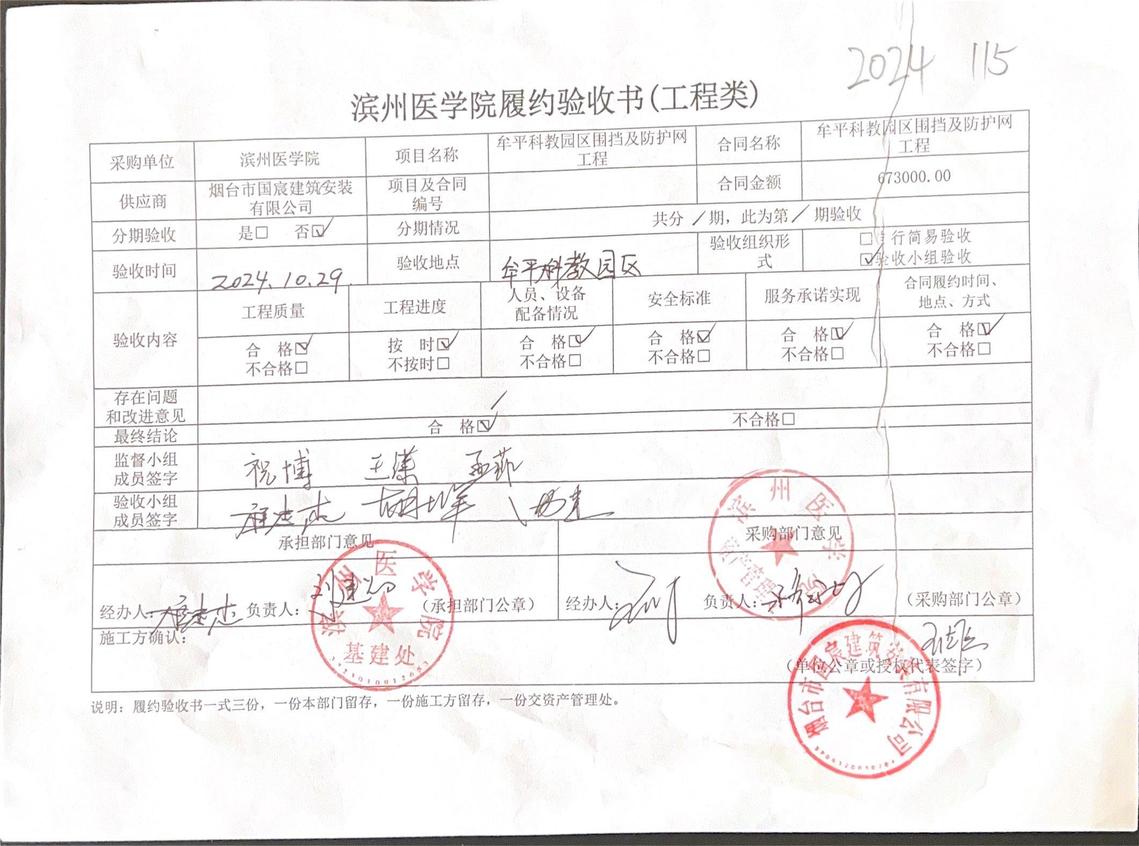 2024 115
滨州医学院履约验收书(工程类)
采购单位 滨州医学院 项目名称 牟平科教园区围挡及防护网工程 合同名称 牟平科教园区围挡及防护网工程
供应商 烟台市国宸建筑安装有限公司 项目及合同编号 合同金额 673000.00
分期验收 是□ 否☑ 分期情况 共分/期，此为第/期验收
验收时间 2024.10.29 验收地点 牟平科教园区 验收组织形式 □ 行简易验收
☑验收小组验收
验收内容 工程质量 工程进度 人员、设备配备情况 安全标准 服务承诺实现 合同履约时间、地点、方式
合 格☑ 按 时☑ 合 格☑ 合 格☑ 合 格☑ 合 格☑
不合格□ 不按时□ 不合格□ 不合格□ 不合格□ 不合格□
存在问题和改进意见
最终结论 合 格☑ 不合格□
监督小组成员签字 祝博 孟菲
验收小组成员签字
承担部门意见 采购部门意见
经办人: 负责人: (承担部门公章) 经办人: 负责人: (采购部门公章)
施工方确认:
(单位公章或授权代表签字)
说明：履约验收书一式三份，一份本部门留存，一份施工方留存，一份交资产管理处。
滨州医学院
基建处
滨州医学院
烟台市国宸建筑安装有限公司